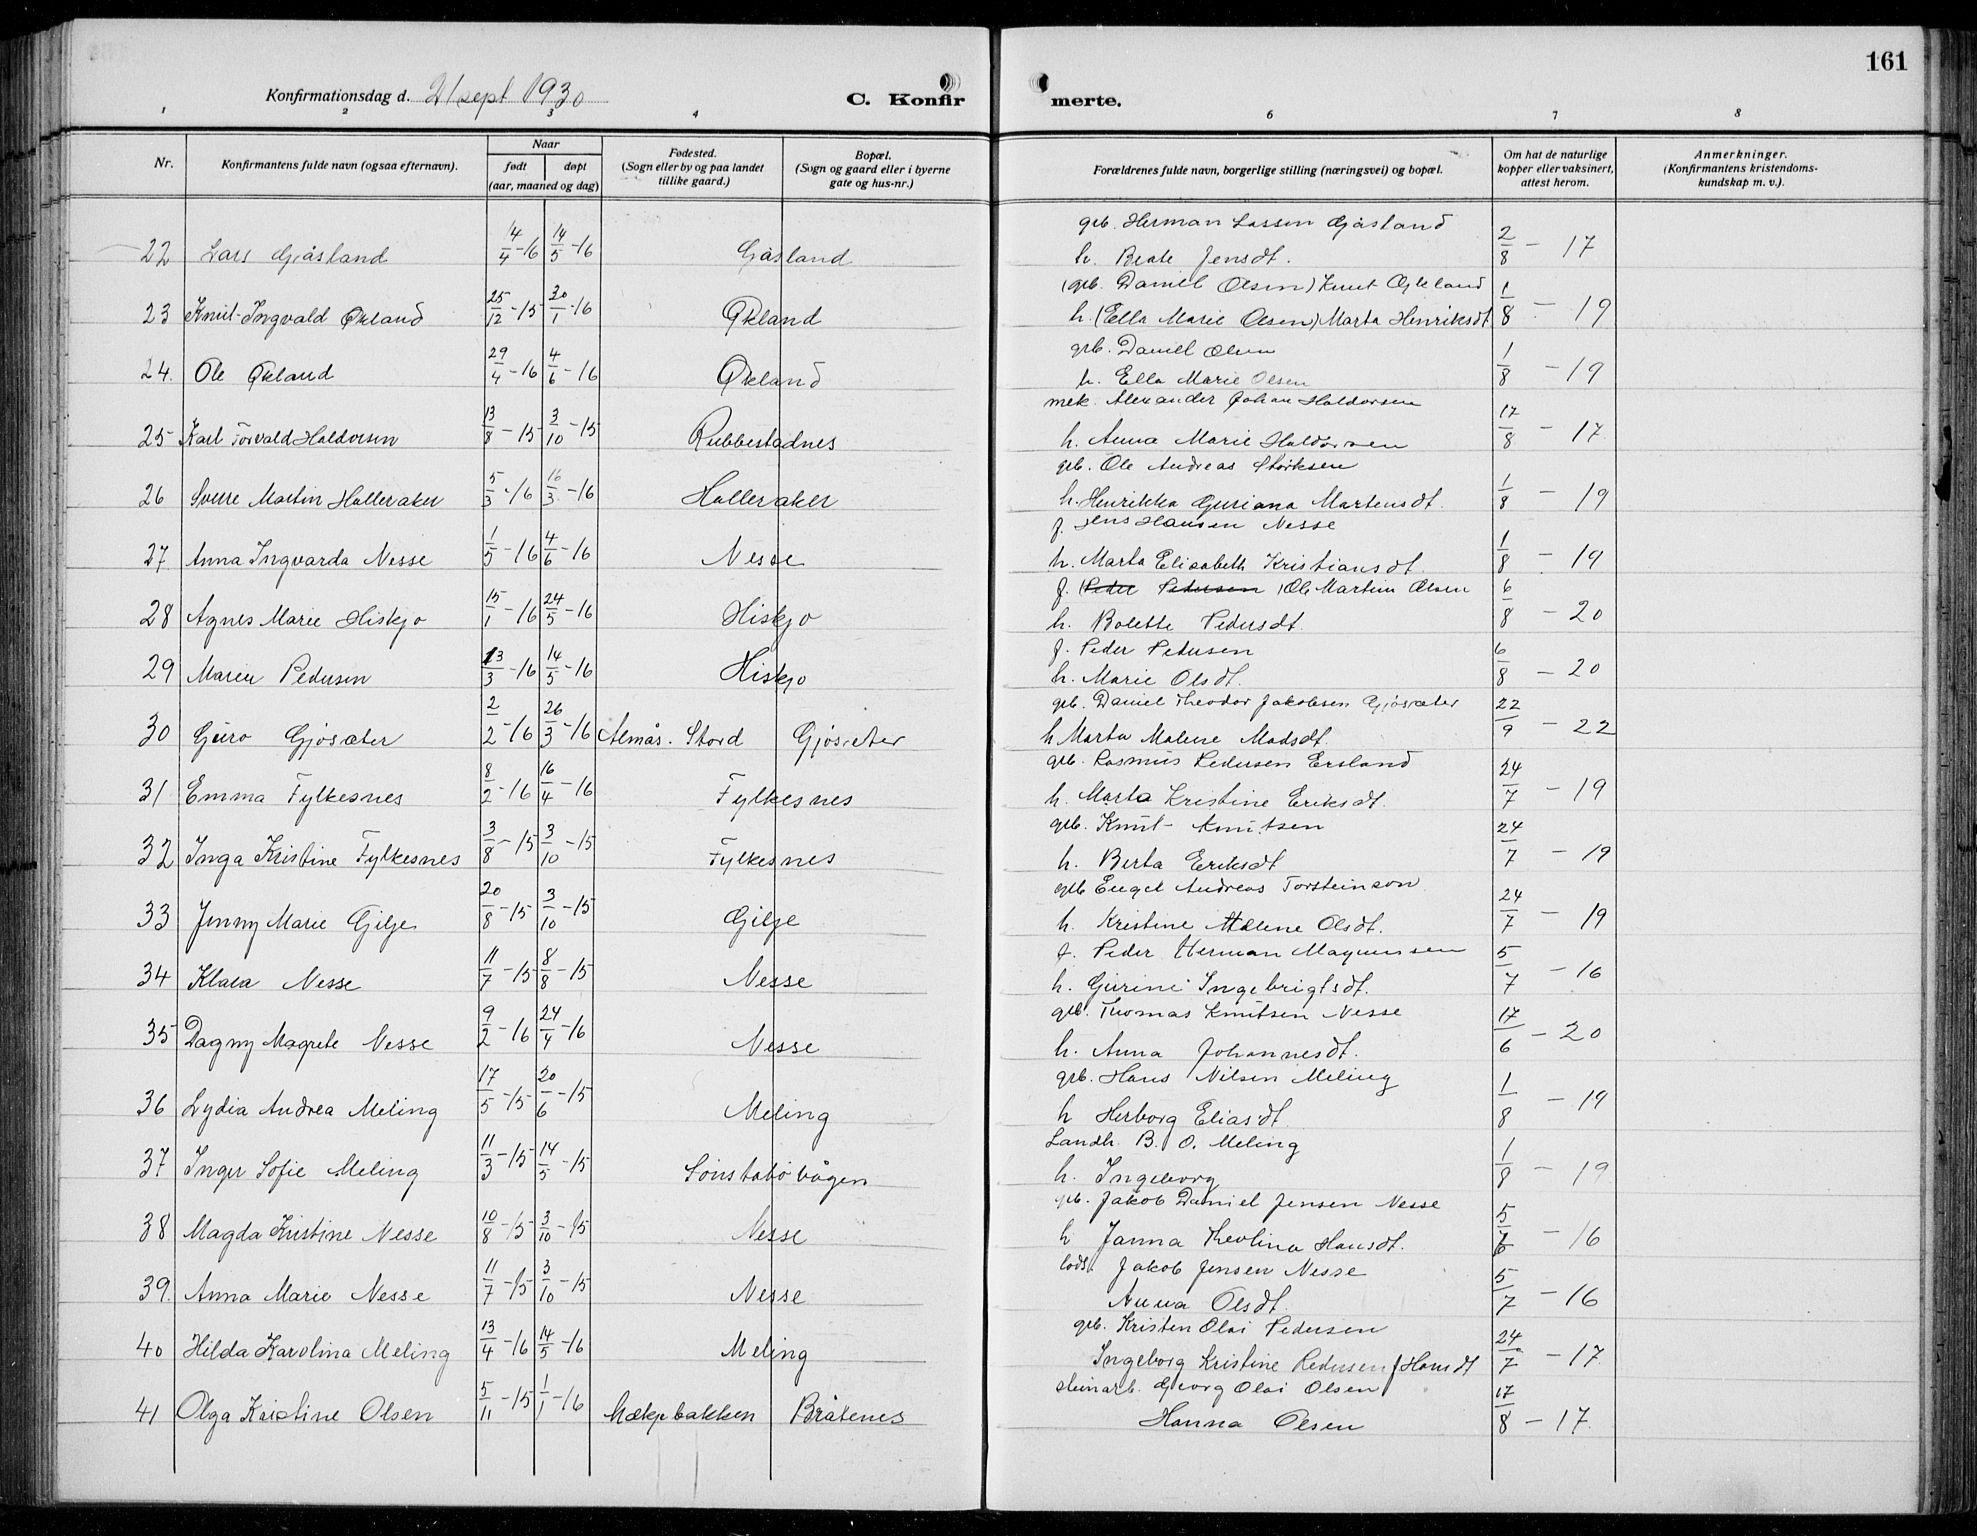 161
Konfirmationsdag d. 21 sept 1930
C. Konfir merte.
1 2 3 4 6 7 8
Nr. Konfirmantens fulde navn (ogsaa efternavn). Naar født døpt (aar, maaned og dag) Fødested. (Sogn eller by og paa landet tillike gaard.) Bopæl. (Sogn og gaard eller i byerne gate og hus-nr.) Forældrenes fulde navn, borgerlige stilling (næringsvei) og bopæl. Om hat de naturlige kopper eller vaksinert, attest herom. Anmerkninger. (Konfirmantens kristendomskundskap m. v.).
grb. Herman Lassen Gåsland
22 Lars Gåsland 14/4-16 14/5-16 Gåsland h. Beate Jensdt. 2/8 - 17
(grb. Daniel Olsen) Knut Økland
23 Knut Ingvald Økland 25/12-15 30/1-16 Økland h. (Ella Marie Olsen) Marta Henriksdt 1/8 - 19
grb. Daniel Olsen
24. Ole Økland 29/4-16 4/6-16 Økland h. Ella Marie Olsen 1/8 - 19
mek. Alexander Johan Haldorsen
25 Karl Torvald Haldorsen 13/8-15 3/10-15 Rubbestadnes h. Anna Marie Haldorsen 17/8 - 17
grb. Ole Andreas Størksen
26 Sverre Martin Halleraker 5/3-16 16/3-16 Halleraker h. Henrikka Guriana Martensdt. 1/8 - 19
f. Jens Hansen Nesse
27. Anna Ingvarda Nesse 1/5-16 4/6-16 Nesse h. Marta Elisabeth Kristiansdt. 1/8 - 19
f. (Peder Pedersen) Ole Martin Olsen
28 Agnes Marie Hiskjo 15/1-16 24/5-16 Hiskjo h. Bolette Pedersdt. 6/8 - 20
f. Peder Pedersen
29 Maren Pedersen 13/3-16 14/5-16 Hiskjo h. Marie Olsdt. 6/8 - 20
grb. Daniel Theodor Jakobsen Gjøsæter
30 Guro Gjøsæter 2/2-16 26/3-16 Almås. Stord Gjøsæter h Marta Malene Madsdt. 22/9 - 22
grb. Rasmus Pedersen Ersland
31 Emma Fylkesnes 8/2-16 16/4-16 Fylkesnes h. Marta Kristine Eriksdt. 24/7 - 19
grb. Knut Knutsen
32 Inga Kristine Fylkesnes 3/8-15 3/10-15 Fylkesnes h. Berta Eriksdt 24/7 - 19
grb Engel Andreas Torsteinson
33 Jenny Marie Gilje 20/8-15 3/10-15 Gilje h. Kristine Malene Olsdt. 24/7 - 19
f. Peder Herman Magnussen
34 Klara Nesse 11/7-15 8/8-15 Nesse h. Gurine Ingebrigtsdt. 5/7 - 16
grb. Thomas Knutsen Nesse
35 Dagny Magrete Nesse 9/2-16 24/4-16 Nesse h. Anna Johannesdt. 17/6 - 20
grb. Hans Nilsen Meling
36 Lydia Andrea Meling 17/5-15 20/6-15 Meling h Herborg Eliasdt 1/8 - 19
Landh. B. O. Meling
37 Inger Sofie Meling 11/3-15 14/5-15 Sønstabø vågen h. Ingeborg 1/8 - 19
grb. Jakob Daniel Jensen Nesse
38 Magda Kristine Nesse 10/8-15 3/10-15 Nesse h Janna Theolina Hansdt. 5/7 - 16
lods. Jakob Jensen Nesse
39. Anna Marie Nesse 11/7-15 3/10-15 Nesse Anna Olsdt. 5/7 - 16
grb. Kristen Olai Pedersen
40 Hilda Karolina Meling 13/4-16 14/5-16 Meling Ingeborg Kristine Pedersen f Hansdt 24/7 - 17
steinarb. Georg Olai Olsen
41 Olga Kristine Olsen 5/11-15 1/1-16 Bråtenes Hanna Olsen 17/8 - 17.